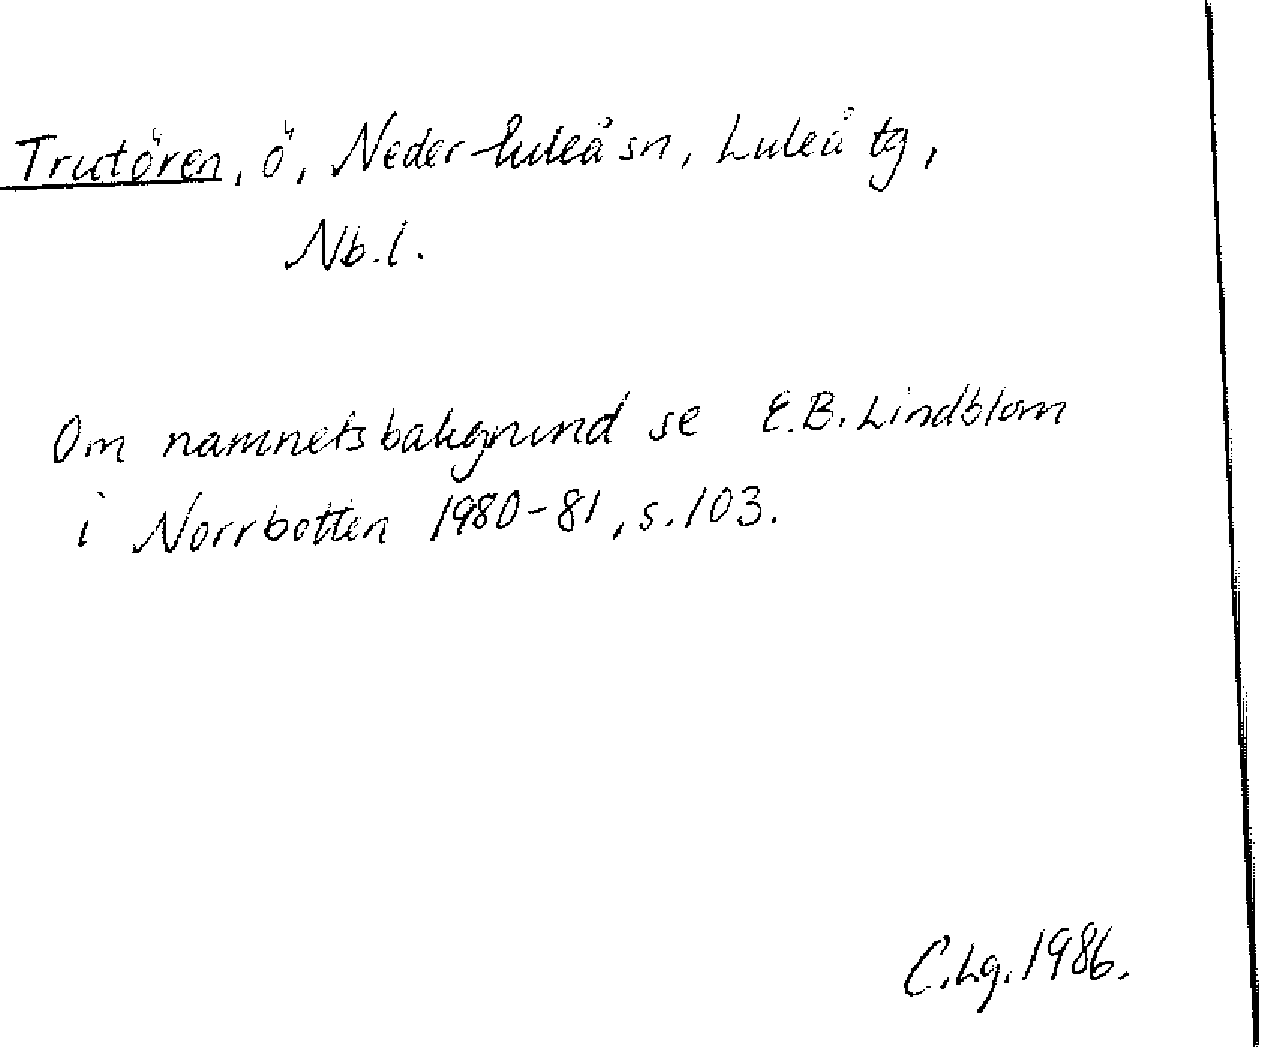 Trutören, ö, Neder-Luleå sn, Luleå tg,
Nb.l.
Om namnets bakgrund se E.B. Lindblom
i Norrbotten 1980-81, s. 103.
C.Lg. 1986.